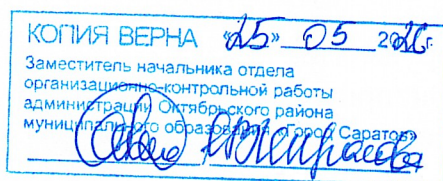 КОПИЯ ВЕРНА «25» 05 2026г.
Заместитель начальника отдела
организационно-контрольной работы
администрации Октябрьского района
муниципального образования «Город Саратов»